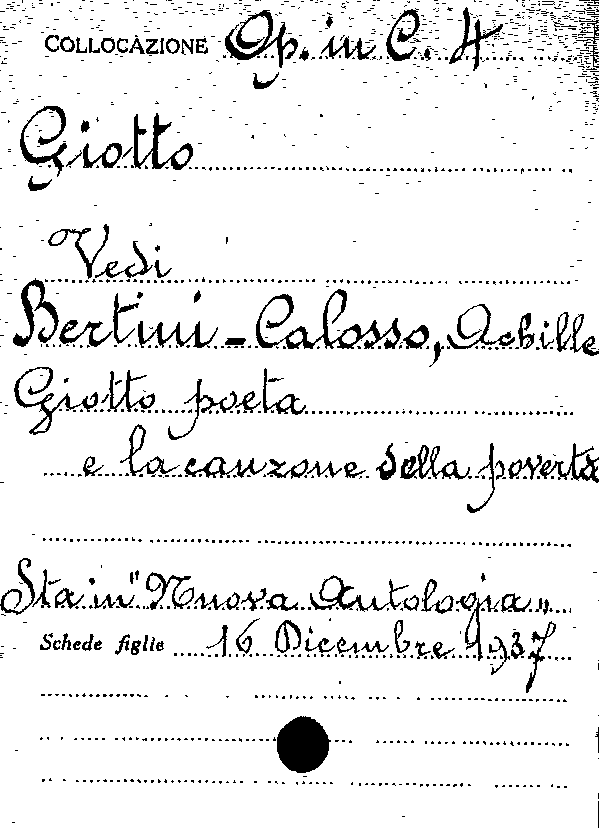 COLLOCAZIONE Op. in C. 4
Giotto
Vedi
Bertini-Calosso, Achille
Giotto poeta
e la canzone della povertà
Sta in "Nuova Antologia„
Schede figlie 16 Dicembre 1937